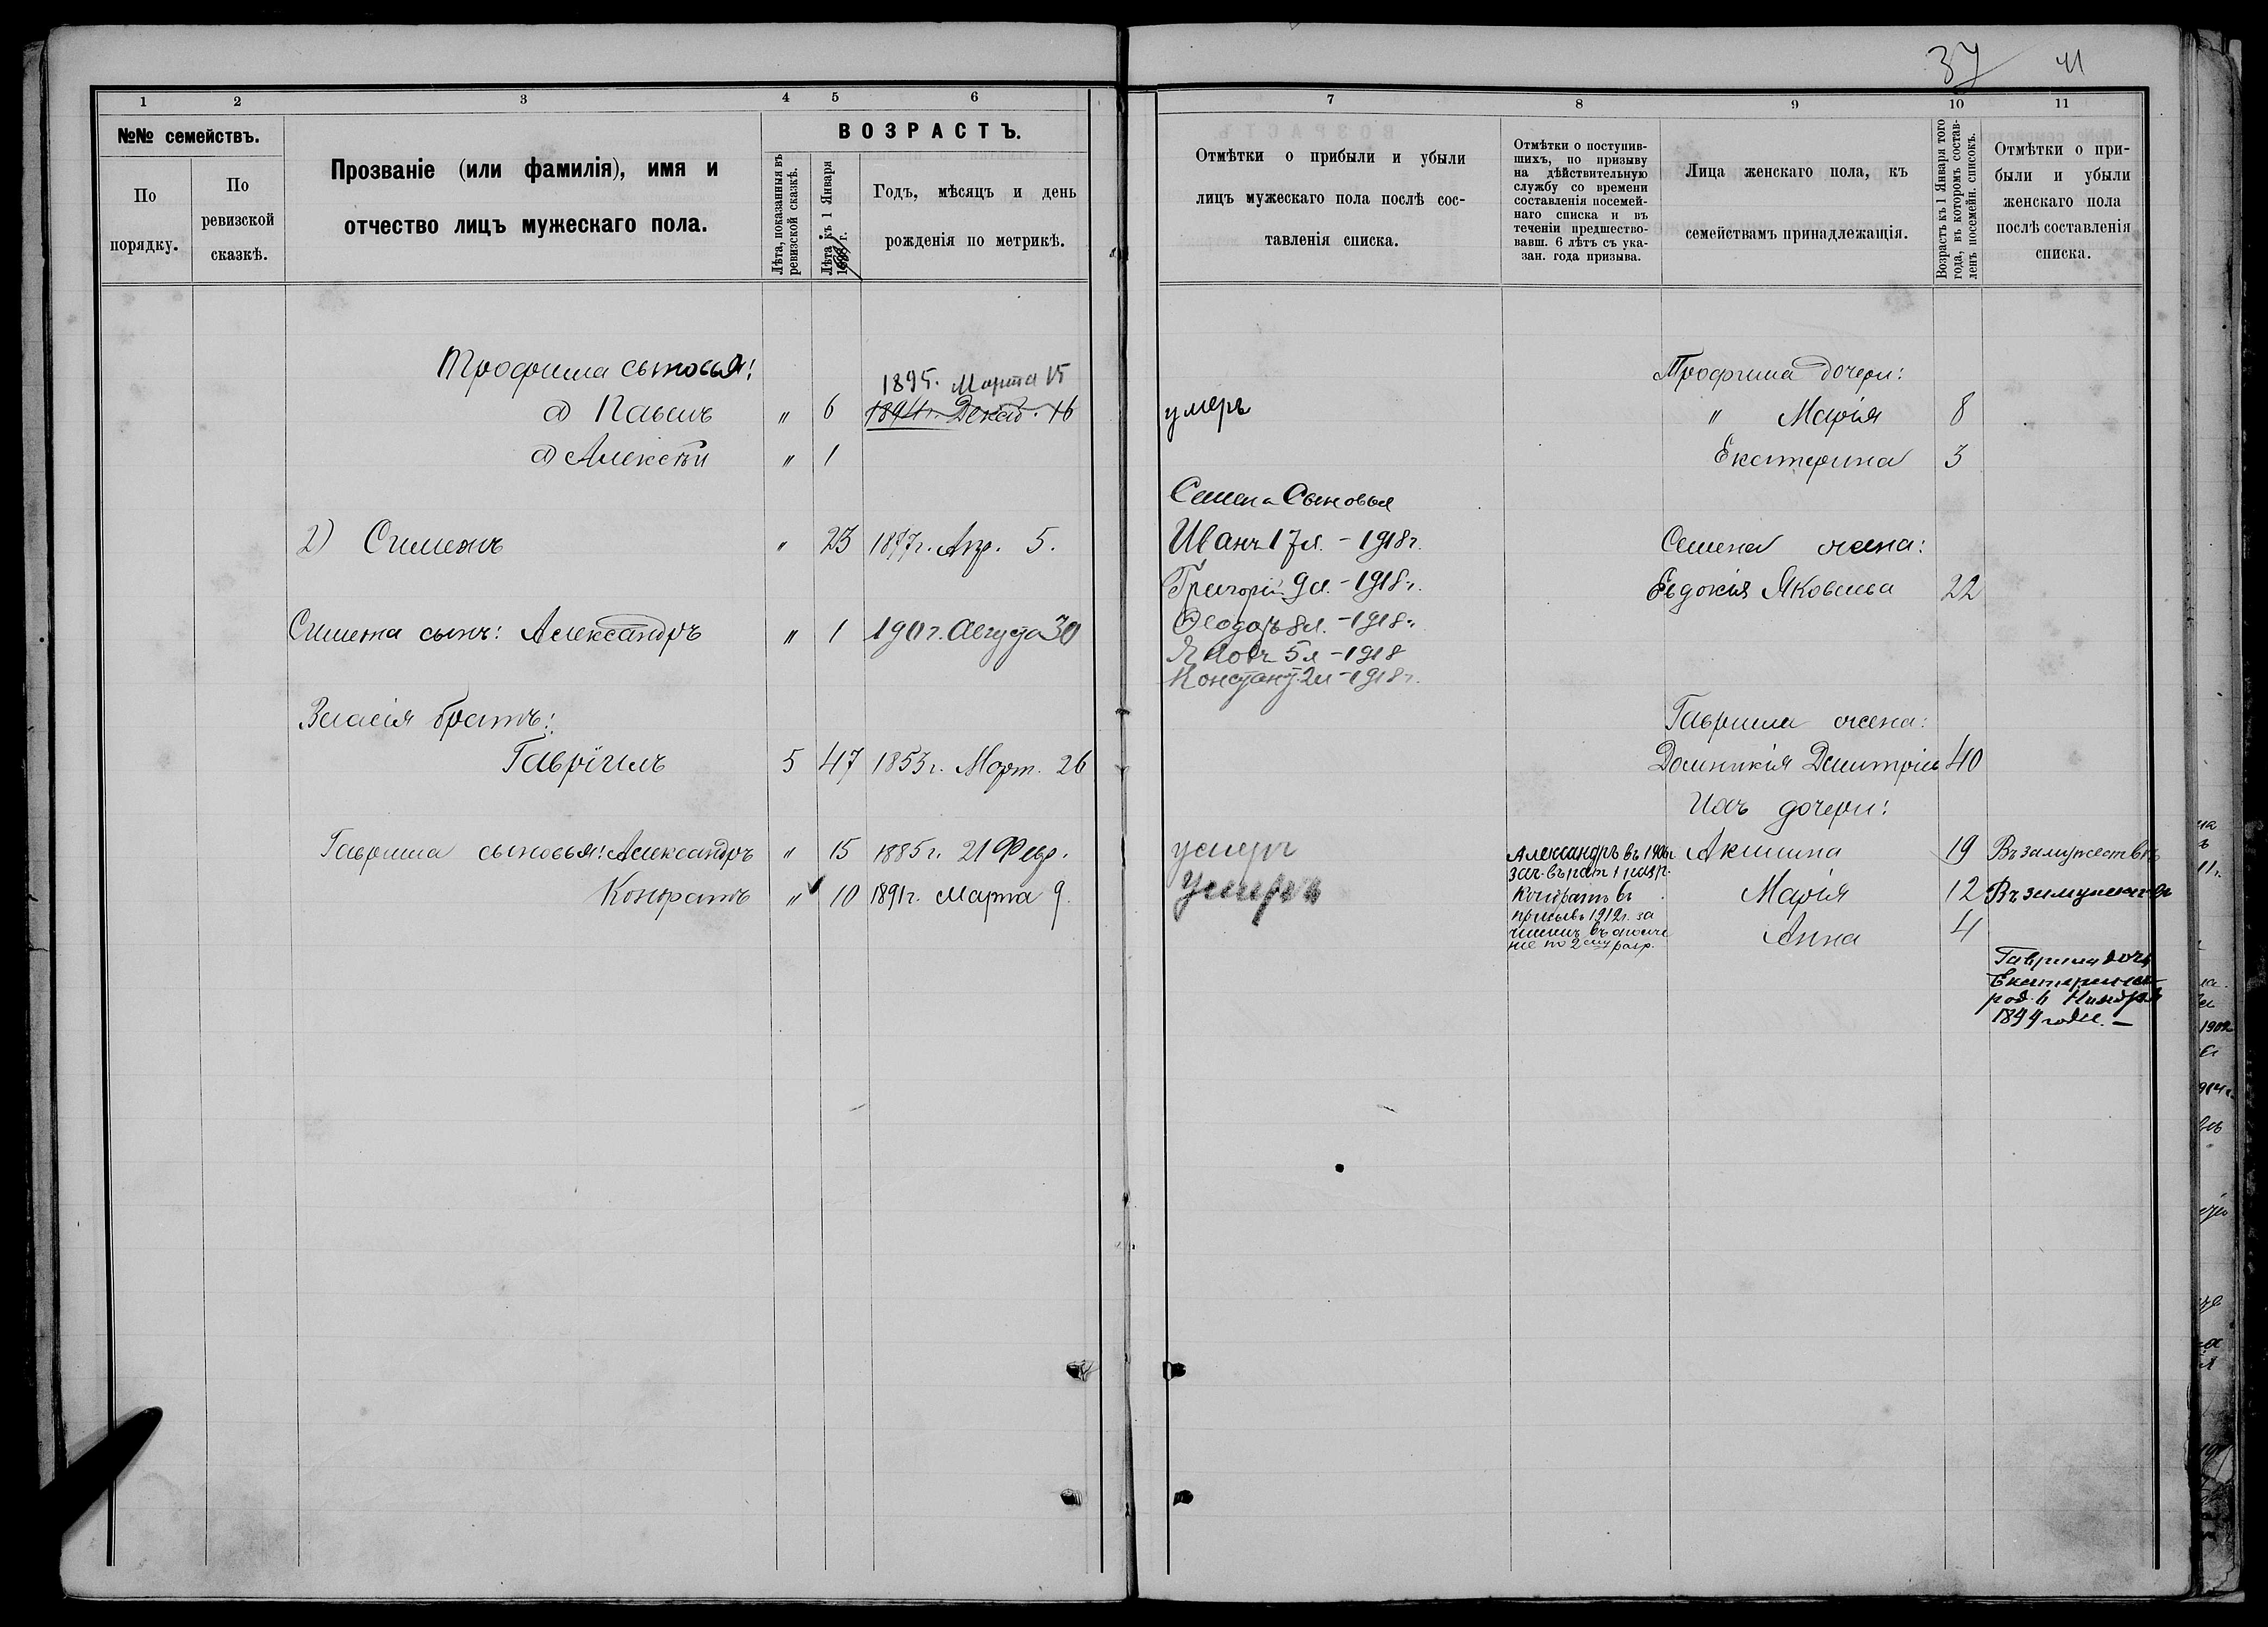 37 41
1 2 3 4 5 6
№№ семействъ.
По порядку.
По ревизской сказкѣ.
Прозваніе (или фамилія), имя и
отчество лицъ мужескаго пола.
ВОЗРАСТЪ.
Лѣта, показанныя въ
ревизской сказкѣ.
Лѣта къ 1 Января
г.
Годъ, мѣсяцъ и день
рожденія по метрикѣ.
Трофима сыновья:
1895. Марта 15
а) Павелъ " 6 1894 г. Декаб. 16
а) Алексѣй " 1
2) Симеонъ " 23 1877 г. Апр. 5.
Симеона сынъ: Александръ " 1 190 г. Августа 30
Власія братъ:
Гавріилъ 5 47 1853 г. Март. 26
Гавриила сыновья: Александръ " 15 1885 г. 21 Февр.
Кондратъ " 10 1891 г. Марта 9.
7 8 9 10 11
Отмѣтки о прибыли и убыли
лицъ мужескаго пола послѣ сос-
тавленія списка.
Отмѣтки о поступив-
шихъ, по призыву
на дѣйствительную
службу со времени
составленія посемей-
наго списка и въ
теченіи предшество-
вавш. 6 лѣтъ съ ука-
зан. года призыва.
Лица женскаго пола, къ
семействамъ принадлежащія.
Возрастъ къ 1 Января того
года, въ которомъ состав-
ленъ посемейн. списокъ.
Отмѣтки о при-
были и убыли
женскаго пола
послѣ составленія
списка.
Трофима дочери:
умеръ " Марія 8
Екатерина 3
Семена Сыновья
Иванъ 17 л. - 1918 г. Семена жена:
Григорій 9 л. - 1918 г. Евдокія Яковлева 22
Ѳеодоръ 8 л. - 1918 г.
Яковъ 5 л - 1918
Констант. 2 л - 1918 г.
Гавриила жена:
Домникія Димитріев 40
Ихъ дочери:
умеръ Александръ въ 1906 г. Акилина 19 Въ замужествѣ
зач. въ рат 1 разр.
умеръ Кондратъ въ Марія 12 Въ замужествѣ
призывъ 1912 г. за
численъ въ ополче Анна 4
ніе по 2 му разр.
Гавриила дочь
Екатерина
род. 6 Ноября
1899 года. —